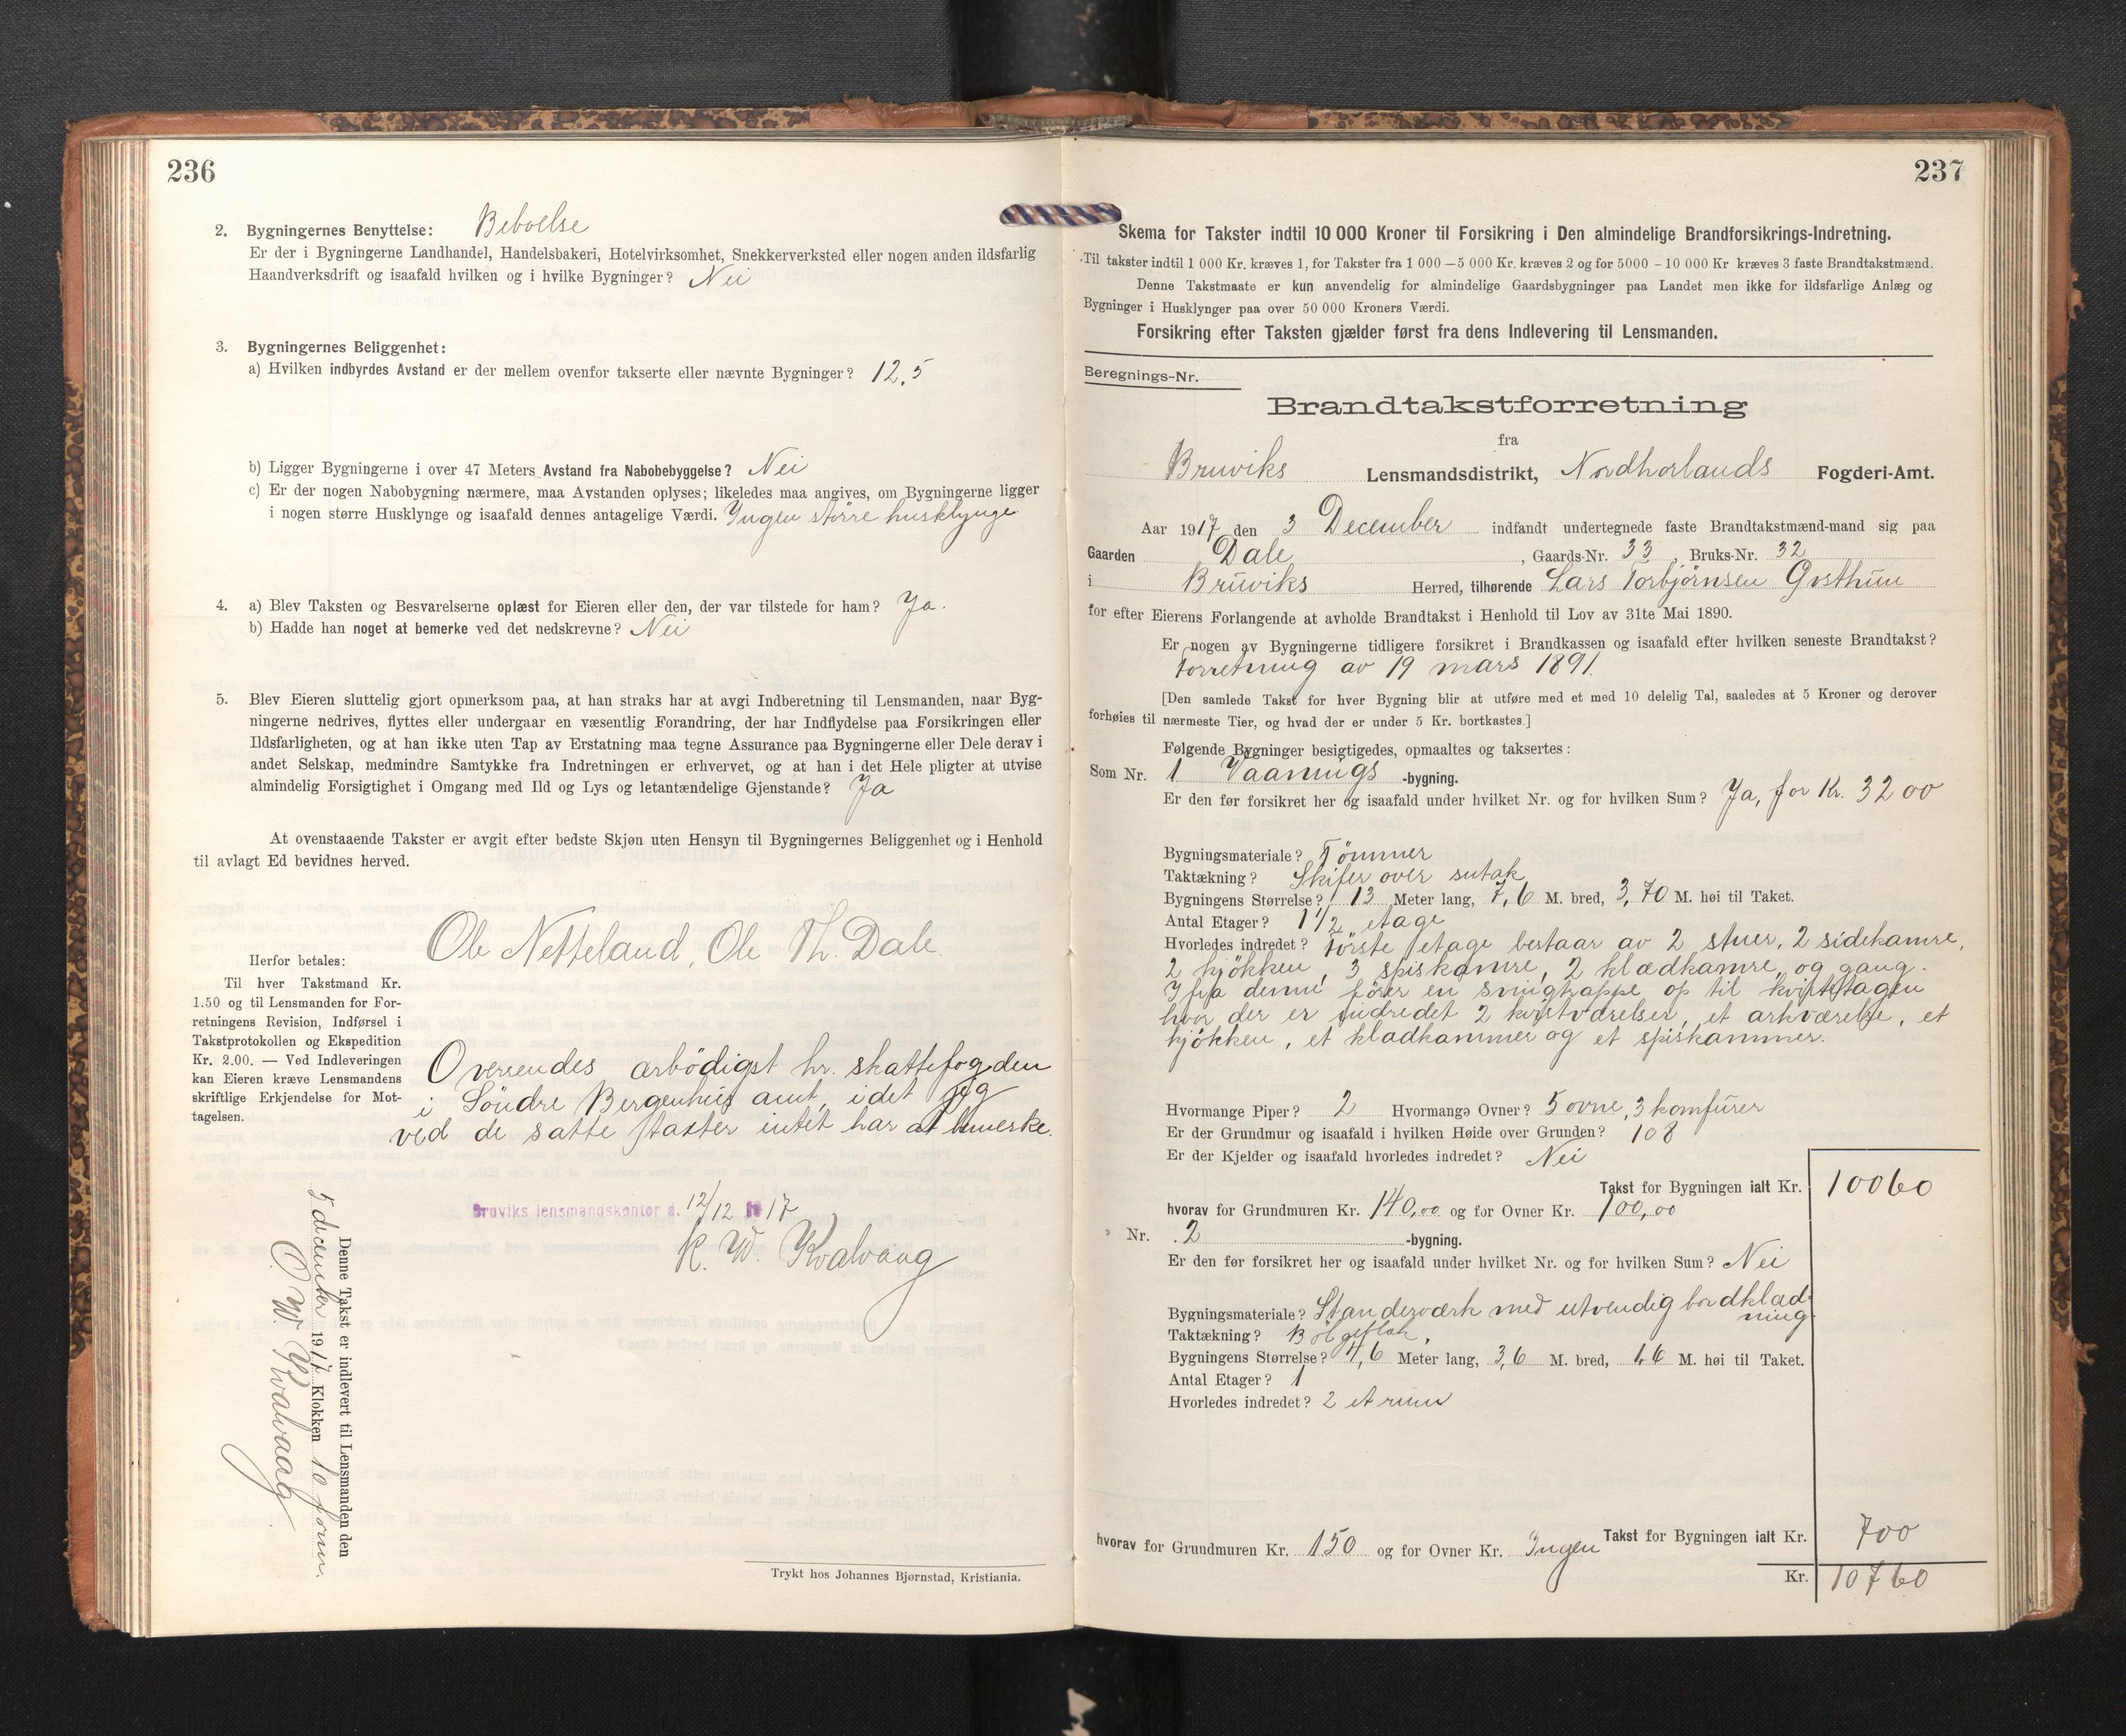 236
2. Bygningernes Benyttelse: Beboelse
Er der i Bygningerne Landhandel, Handelsbakeri, Hotelvirksomhet, Snekkerverksted eller nogen anden ildsfarlig
Haandverksdrift og isaafald hvilken og i hvilke Bygninger? Nei
3. Bygningernes Beliggenhet:
a) Hvilken indbyrdes Avstand er der mellem ovenfor takserte eller nævnte Bygninger? 12,5
b) Ligger Bygningerne i over 47 Meters Avstand fra Nabobebyggelse? Nei
c) Er der nogen Nabobygning nærmere, maa Avstanden oplyses; likeledes maa angives, om Bygningerne ligger
i nogen større Husklynge og isaafald dennes antagelige Værdi. Ingen större husklynge
4. a) Blev Taksten og Besvarelserne oplæst for Eieren eller den, der var tilstede for ham? Ja.
b) Hadde han noget at bemerke ved det nedskrevne? Nei
5. Blev Eieren sluttelig gjort opmerksom paa, at han straks har at avgi Indberetning til Lensmanden, naar Byg-
ningerne nedrives, flyttes eller undergaar en væsentlig Forandring, der har Indflydelse paa Forsikringen eller
Ildsfarligheten, og at han ikke uten Tap av Erstatning maa tegne Assurance paa Bygningerne eller Dele derav i
andet Selskap, medmindre Samtykke fra Indretningen er erhvervet, og at han i det Hele pligter at utvise
almindelig Forsigtighet i Omgang med Ild og Lys og letantændelige Gjenstande? Ja
At ovenstaaende Takster er avgit efter bedste Skjøn uten Hensyn til Bygningernes Beliggenhet og i Henhold
til avlagt Ed bevidnes herved.
Ole Nesseland, Ole Th. Dale.
Herfor betales:
Til hver Takstmand Kr.
1.50 og til Lensmanden for For-
retningens Revision, Indførsel i
Takstprotokollen og Ekspedition
Kr. 2.00. — Ved Indleveringen
kan Eieren kræve Lensmandens
skriftlige Erkjendelse for Mot-
tagelsen.
Oversendes arbödigst hr. skattefogden
i Söndre Bergenhus amt, idet jeg
ved de satte takster intet har at bemerke.
Bruviks lensmandskontor d. 12/12 1917
K. W. Kvalvaag
Denne Takst er indlevert til Lensmanden den
5 december 1917 Klokken 10 form.
O. W. Kvalvaag
Trykt hos Johannes Bjørnstad, Kristiania.
237
Skema for Takster indtil 10 000 Kroner til Forsikring i Den almindelige Brandforsikrings-Indretning.
Til takster indtil 1 000 Kr. kræves 1, for Takster fra 1 000 — 5 000 Kr. kræves 2 og for 5000 – 10 000 Kr kræves 3 faste Brandtakstmænd.
Denne Takstmaate er kun anvendelig for almindelige Gaardsbygninger paa Landet men ikke for ildsfarlige Anlæg og
Bygninger i Husklynger paa over 50 000 Kroners Værdi.
Forsikring efter Taksten gjælder først fra dens Indlevering til Lensmanden.
Beregnings-Nr.
Brandtakstforretning
fra
Bruviks Lensmandsdistrikt, Nordhorlands Fogderi-Amt.
Aar 1917 den 3 December indfandt undertegnede faste Brandtakstmænd-mand sig paa
Gaarden Dale, Gaards-Nr. 33, Bruks-Nr. 32
i Bruviks Herred, tilhørende Lars Torbjörnsen Gvsthun
for efter Eierens Forlangende at avholde Brandtakst i Henhold til Lov av 31te Mai 1890.
Er nogen av Bygningerne tidligere forsikret i Brandkassen og isaafald efter hvilken seneste Brandtakst?
Forretning av 19 mars 1891.
[Den samlede Takst for hver Bygning blir at utføre med et med 10 delelig Tal, saaledes at 5 Kroner og derover
forhøies til nærmeste Tier, og hvad der er under 5 Kr. bortkastes.]
Følgende Bygninger besigtigedes, opmaaltes og taksertes:
Som Nr. 1 Vaanings -bygning.
Er den før forsikret her og isaafald under hvilket Nr. og for hvilken Sum? Ja, for Kr. 3200
Bygningsmateriale? Tömmer
Taktækning? Skifer over sutak
Bygningens Størrelse? 13 Meter lang, 7,6 M. bred, 3,70 M. høi til Taket.
Antal Etager? 1 1/2 etage
Hvorledes indredet? Förste etage bestaar av 2 stuer, 2 sidekamre,
2 kjökken, 3 spiskamre, 2 klædkamre, og gang.
Ifra denne förer en svingtrappe op til kvistetagen
hvor der er indredet 2 kvistværelser, et arkværelse, et
kjökken, et klædkammer og et spiskammer.
Hvormange Piper? 2 Hvormange Ovner? 5 ovne, 3 komfürer
Er der Grundmur og isaafald i hvilken Høide over Grunden? 108
Er der Kjelder og isaafald hvorledes indredet? Nei
Takst for Bygningen ialt Kr. 10060
hvorav for Grundmuren Kr. 140,00 og for Ovner Kr. 100,00
» Nr. 2 -bygning.
Er den før forsikret her og isaafald under hvilket Nr. og for hvilken Sum? Nei
Bygningsmateriale? Standerværk med utvendig bordklæd-
ning
Taktækning? Bölgeblik,
Bygningens Størrelse? 4,6 Meter lang, 3,6 M. bred, 1,6 M. høi til Taket.
Antal Etager? 1
Hvorledes indredet? 2 et rum
Takst for Bygningen ialt Kr. 700
hvorav for Grundmuren Kr. 150 og for Ovner Kr. Ingen
Kr. 10760